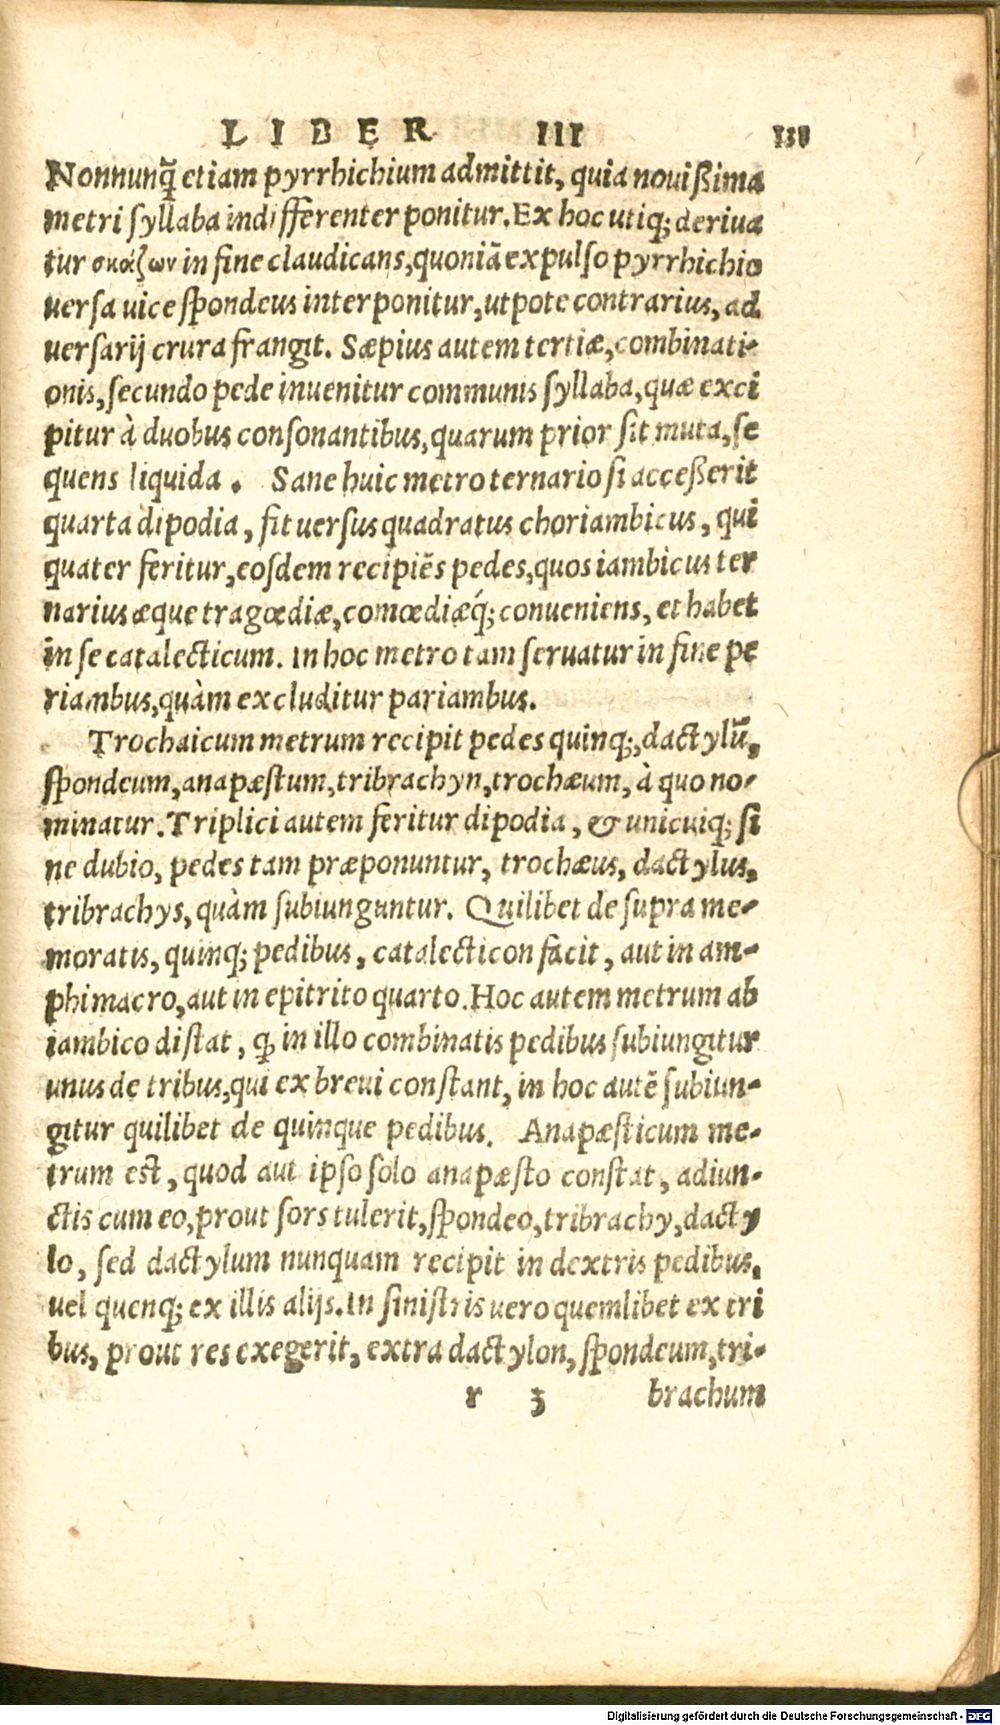 LIBER III 131
Nonnunq̃ etiam pyrrhichium admittit, quia nouißima
metri syllaba indifferenter ponitur. Ex hoc utiq; deriua
tur σκάζων in fine claudicans, quoniã expulso pyrrhichio
uersa uice spondeus interponitur, utpote contrarius, ad
uersarij crura frangit. Sæpius autem tertiæ, combinati-
onis, secundo pede inuenitur communis syllaba, quæ exci
pitur à duobus consonantibus, quarum prior sit muta, se
quens liquida. Sane huic metro ternario si acceßerit
quarta dipodia, fit uersus quadratus choriambicus, qui
quater feritur, eosdem recipiẽs pedes, quos iambicus ter
narius æque tragœdiæ, comœdiæq́; conueniens, et habet
in se catalecticum. In hoc metro tam seruatur in fine pe
riambus, quàm excluditur pariambus.
Trochaicum metrum recipit pedes quinq;, dactylũ,
spondeum, anapæstum, tribrachyn, trochæum, à quo no-
minatur. Triplici autem feritur dipodia, & unicuiq; si
ne dubio, pedes tam præponuntur, trochæus, dactylus,
tribrachys, quàm subiunguntur. Quilibet de supra me-
moratis, quinq; pedibus, catalecticon facit, aut in am-
phimacro, aut in epitrito quarto. Hoc autem metrum ab
iambico distat, ꝙ in illo combinatis pedibus subiungitur
unus de tribus, qui ex breui constant, in hoc autẽ subiun-
gitur quilibet de quinque pedibus. Anapæsticum me-
trum est, quod aut ipso solo anapæsto constat, adiun-
ctis cum eo, prout sors tulerit, spondeo, tribrachy, dacty
lo, sed dactylum nunquam recipit in dextris pedibus,
uel quenq; ex illis alijs. In sinistris uero quemlibet ex tri
bus, prout res exegerit, extra dactylon, spondeum, tri-
r 3 brachum
Digitalisierung gefördert durch die Deutsche Forschungsgemeinschaft - DFG